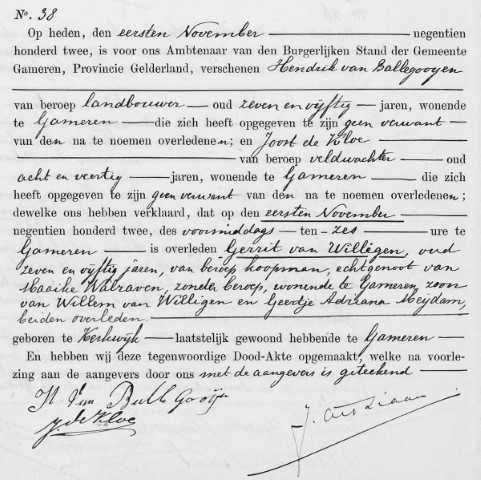 No. 38
Op heden, den eersten November negentien
honderd twee, is voor ons Ambtenaar van den Burgerlijken Stand der Gemeente
Gameren, Provincie Gelderland, verschenen Hendrik van Ballegooyen
van beroep landbouwer oud zeven en vijftig jaren, wonende
te Gameren die zich heeft opgegeven te zijn geen verwant
van den na te noemen overledenen; en Joost de Kloe
van beroep veldwachter oud
acht en veertig jaren, wonende te Gameren die zich
heeft opgegeven te zijn geen verwant van den na te noemen overledenen;
dewelke ons hebben verklaard, dat op den eersten November
negentien honderd twee, des voormiddags ten zes ure te
Gameren is overleden Gerrit van Willigen, oud
zeven en vijftig jaren, van beroep koopman, echtgenoot van
Maaike Walraven, zonder beroep, wonende te Gameren, zoon
van Willem van Willigen en Geertje Adriana Meijdam,
beiden overleden
geboren te Kerkwijk laatstelijk gewoond hebbende te Gameren
En hebben wij deze tegenwoordige Dood-Akte opgemaakt, welke na voorle-
zing aan de aangevers door ons met de aangevers is geteekend
H. van Ballegooije
J. de Kloe